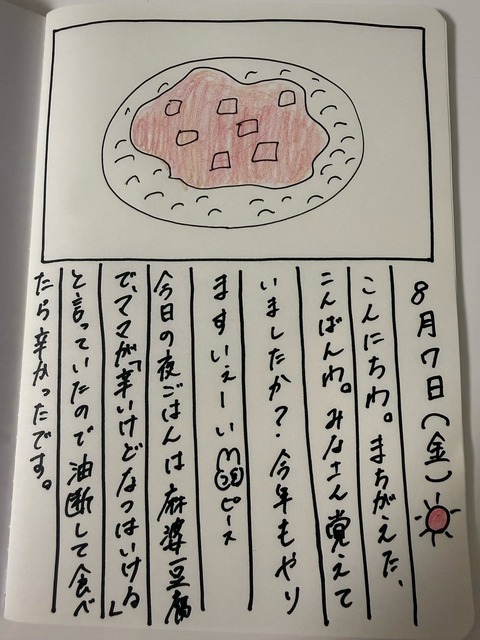 8月7日(金)
こんにちわ。まちがえた、
こんばんわ。みなさん覚えて
いましたか？今年もやり
ますいぇーいピース
今日の夜ごはんは麻婆豆腐
で、ママが「辛いけどなつはいける」
と言っていたので油断して食べ
たら辛かったです。